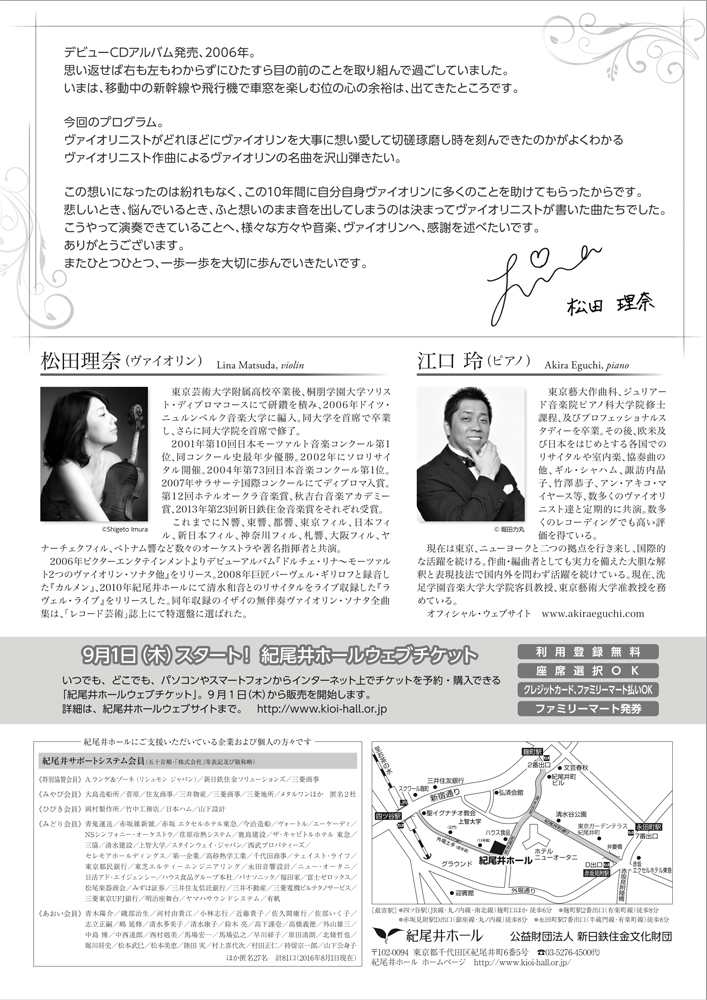 デビューCDアルバム発売、2006年。
思い返せば右も左もわからずにひたすら目の前のことを取り組んで過ごしていました。
いまは、移動中の新幹線や飛行機で車窓を楽しむ位の心の余裕は、出てきたところです。
今回のプログラム。
ヴァイオリニストがどれほどにヴァイオリンを大事に想い愛して切磋琢磨し時を刻んできたのかがよくわかる
ヴァイオリニスト作曲によるヴァイオリンの名曲を沢山弾きたい。
この想いになったのは紛れもなく、この10年間に自分自身ヴァイオリンに多くのことを助けてもらったからです。
悲しいとき、悩んでいるとき、ふと想いのまま音を出してしまうのは決まってヴァイオリニストが書いた曲たちでした。
こうやって演奏できていることへ、様々な方々や音楽、ヴァイオリンへ、感謝を述べたいです。
ありがとうございます。
またひとつひとつ、一歩一歩を大切に歩んでいきたいです。
Lina
松田 理奈
松田理奈（ヴァイオリン） Lina Matsuda, violin
©Shigeto Imura
東京芸術大学附属高校卒業後、桐朋学園大学ソリス
ト・ディプロマコースにて研鑽を積み、2006年ドイツ・
ニュルンベルク音楽大学に編入。同大学を首席で卒業
し、さらに同大学院を首席で修了。
2001年第10回日本モーツァルト音楽コンクール第1
位、同コンクール史最年少優勝。2002年にソロリサイ
タル開催。2004年第73回日本音楽コンクール第1位。
2007年サラサーテ国際コンクールにてディプロマ入賞。
第12回ホテルオークラ音楽賞、秋吉台音楽アカデミー
賞、2013年第23回新日鉄住金音楽賞をそれぞれ受賞。
これまでにＮ響、東響、都響、東京フィル、日本フィ
ル、新日本フィル、神奈川フィル、札響、大阪フィル、ヤ
ナーチェクフィル、ベトナム響など数々のオーケストラや著名指揮者と共演。
2006年ビクターエンタテインメントよりデビューアルバム『ドルチェ・リナ〜モーツァル
ト2つのヴァイオリン・ソナタ他』をリリース。2008年巨匠パーヴェル・ギリロフと録音し
た『カルメン』、2010年紀尾井ホールにて清水和音とのリサイタルをライブ収録した『ラ
ヴェル・ライブ』をリリースした。同年収録のイザイの無伴奏ヴァイオリン・ソナタ全曲
集は、「レコード芸術」誌上にて特選盤に選ばれた。
江口 玲（ピアノ） Akira Eguchi, piano
© 堀田力丸
東京藝大作曲科、ジュリアー
ド音楽院ピアノ科大学院修士
課程、及びプロフェッショナルス
タディーを卒業。その後、欧米及
び日本をはじめとする各国での
リサイタルや室内楽、協奏曲の
他、ギル・シャハム、諏訪内晶
子、竹澤恭子、アン・アキコ・マ
イヤース等、数多くのヴァイオリ
ニスト達と定期的に共演。数多
くのレコーディングでも高い評
価を得ている。
現在は東京、ニューヨークと二つの拠点を行き来し、国際的
な活躍を続ける。作曲・編曲者としても実力を備えた大胆な解
釈と表現技法で国内外を問わず活躍を続けている。現在、洗
足学園音楽大学大学院客員教授、東京藝術大学准教授を務
めている。
オフィシャル・ウェブサイト www.akiraeguchi.com
9月1日（木）スタート！ 紀尾井ホールウェブチケット
いつでも、どこでも、パソコンやスマートフォンからインターネット上でチケットを予約・購入できる
「紀尾井ホールウェブチケット」。9月1日（木）から販売を開始します。
詳細は、紀尾井ホールウェブサイトまで。 http://www.kioi-hall.or.jp
利用登録無料
座席選択OK
クレジットカード、ファミリーマート払いOK
ファミリーマート発券
紀尾井ホールにご支援いただいている企業および個人の方々です
紀尾井サポートシステム会員（五十音順・「株式会社」等表記及び敬称略）
《特別協賛会員》 A.ランゲ＆ゾーネ（リシュモン ジャパン）／新日鉄住金ソリューションズ／三菱商事
《みやび会員》 大島造船所／菅原／住友商事／三井物産／三菱商事／三菱地所／メタルワンほか 匿名2社
《ひびき会員》 岡村製作所／竹中工務店／日本ハム／山下設計
《みどり会員》 青鬼運送／赤坂維新號／赤坂 エクセルホテル東急／今治造船／ヴォートル／エーケーディ／
NSシンフォニー・オーケストラ／荏原冷熱システム／鹿島建設／ザ・キャピトルホテル 東急／
三協／清水建設／上智大学／スタインウェイ・ジャパン／西武プロパティーズ／
セレモアホールディングス／第一企業／高砂熱学工業／千代田商事／テェイスト・ライフ／
東京都民銀行／東芝エルティーエンジニアリング／永田音響設計／ニュー・オータニ／
日活アド・エイジェンシー／ハウス食品グループ本社／パナソニック／福田家／富士ゼロックス／
松尾楽器商会／みずほ証券／三井住友信託銀行／三井不動産／三菱電機ビルテクノサービス／
三菱東京UFJ銀行／明治座舞台／ヤマハサウンドシステム／有帆
《あおい会員》 青木陽介／磯部治生／河村由貴江／小林志行／近藤貴子／佐久間庸行／佐部いく子／
志立正嗣／嶋 延輝／清水多美子／清水康子／鈴木 亮／高下謹壱／高橋義徳／外山雄三／
中島 博／中西達郎／西村庭美／馬場宏一／馬場弘之／早川祥子／原田清朗／北條哲也／
堀川将史／松本武巳／松本美恵／陸田 実／村上喜代次／村田正仁／持留宗一郎／山下公身子
ほか匿名27名 計81口（2016年8月1日現在）
麹町駅
2番出口
文芸春秋
三井住友銀行
紀尾井町ビル
スクワール麹町
新宿通り
弘済会館
四ツ谷駅
聖イグナチオ教会
上智大学
清水谷公園
東京ガーデンテラス紀尾井町
永田町駅
7番出口
ハウス食品
紀尾井ホール
ホテルニューオータニ
弁慶橋
D出口
赤坂見附駅
赤坂エクセルホテル東急
グラウンド
外堀通り
迎賓館
［最寄駅］●四ツ谷駅（JR線・丸ノ内線・南北線）麹町口ほか 徒歩6分 ●麹町駅2番出口（有楽町線）徒歩8分
●赤坂見附駅D出口（銀座線・丸ノ内線）徒歩8分 ●永田町駅7番出口（半蔵門線・有楽町線）徒歩8分
紀尾井ホール 公益財団法人 新日鉄住金文化財団
〒102-0094 東京都千代田区紀尾井町6番5号 ☎03-5276-4500㈹
紀尾井ホール ホームページ http://www.kioi-hall.or.jp/